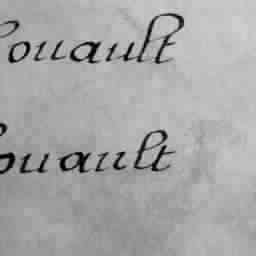 ouault
ouault